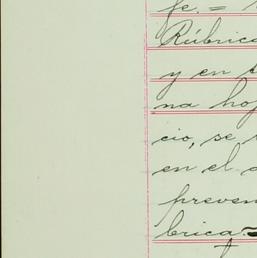 fe. =
Rúbrica
y en
na hoj
cio, se
en el
preven
brica.